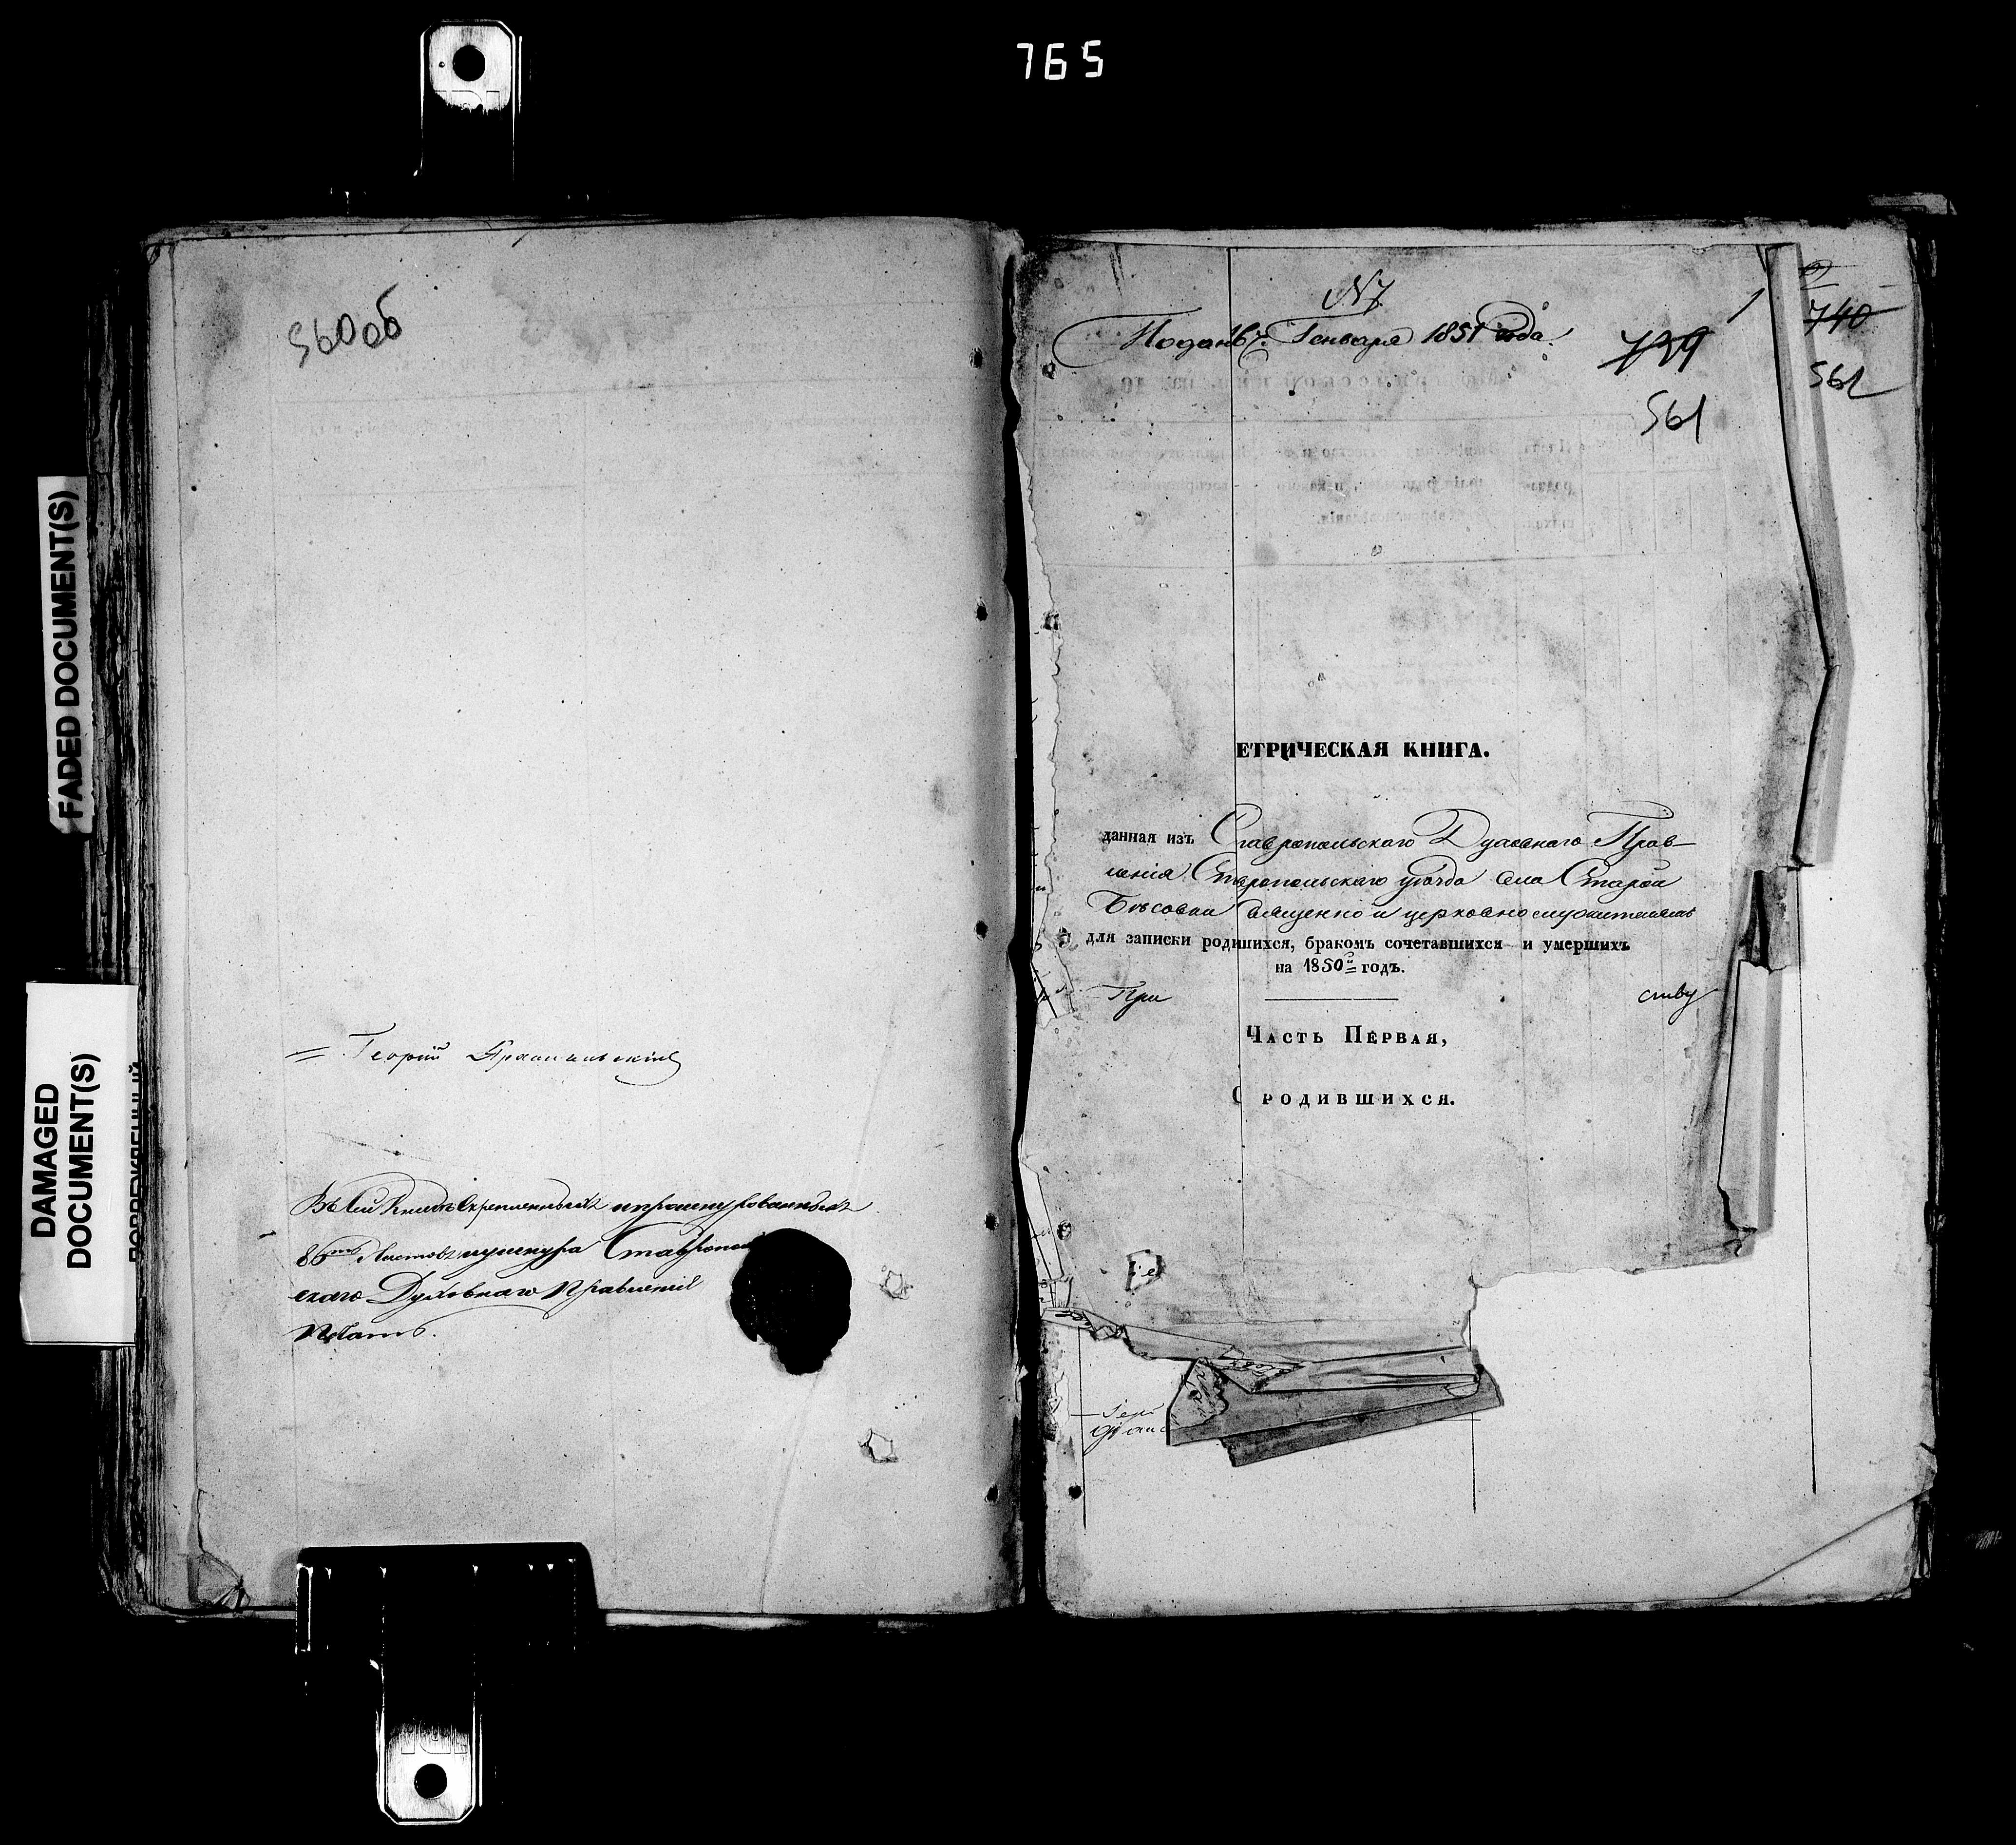 765
FADED DOCUMENT(S)
DAMAGED
DOCUMENT(S)
560об
= Георгій
Въ сей книгѣ скрѣпленныхъ и прошнурованныхъ
86ть листовъ и у шнура Ставрополь
скаго Духовнаго Правленія
печать.
№ 7
Января 1851 года.
739
561
740
562
ЕТРИЧЕСКАЯ КНИГА.
данная изъ Ставропольскаго Духовнаго Прав-
ленія Ставропольскаго уѣзда села Старой
Бѣсовки священно и церковнослужителямъ
для записки родишихся, бракомъ сочетавшихся и умершихъ
на 1850й годъ.
При ству
ЧАСТЬ ПЕРВАЯ,
РОДИВШИХСЯ.